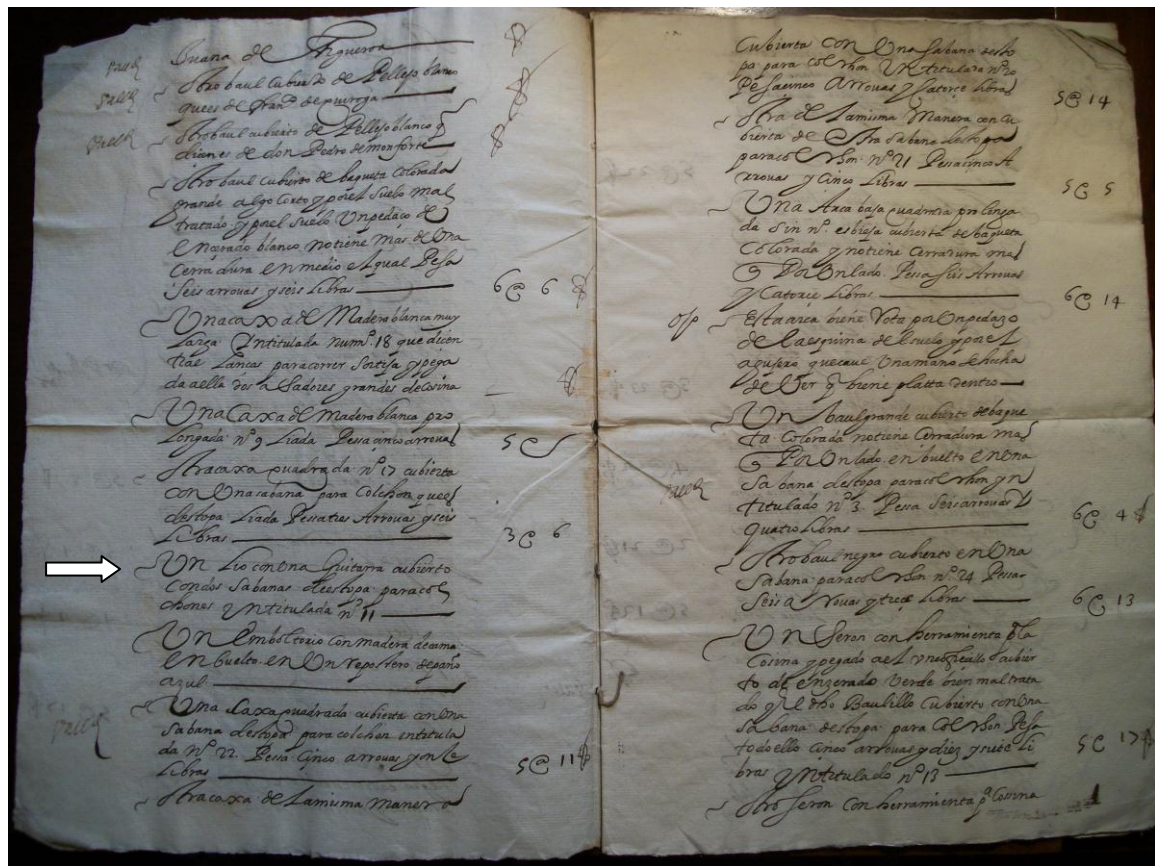 Juana de Figueroa
otro baul cubierto de Pellejo blanco
que es de fran.co de
otro baul cubierto de Pellejo blanco q
dicen es de don Pedro de monforte
otro baul cubierto de baqueta colorada
grande algo Corto y por el suelo mal
tratado y por el suelo Un pedaço de
encerado blanco no tiene mas de Una
cerradura en medio el qual Pesa
seis arrouas y seis Libras 6@ 6
Una caxa de Madera blanca muy
Larga Yntitulada num.o 18 que dicen
trae Lanças para correr sortija y pega
da a ella dos asadores grandes de cosina
Una Caxa de Madera blanca pro
Longada n.o 9 Liada Pessa cinco arrouas 5@
otra caxa quadrada n.o 17 cubierta
con Una sabana para Colchon que es
destopa Liada Pessa tres Arrouas y seis
Libras 3@ 6
Un Lio con Una Guitarra cubierto
con dos Sabanas de estopa para col
chones Yntitulada n.o 11
Un emboltorio con madera de cama
en buelto en Un repostero de paño
azul
Una Caxa quadrada cubierta con Una
Sabana destopa para colchon intitula
da N.o 22 Pessa Cinco arrouas y onse
Libras 5@ 11
otra caxa de La misma manera
Cubierta con Una Sabana desto
pa para colchon Yntitulada n.o 20
Pesa cinco Arrouas y Catorce libras 5@ 14
otra de La misma Manera con cu
bierta de otra sabana destopa
para colchon n.o 21 Pessa cinco A
rrouas y Cinco Libras 5@ 5
Una Arca baja quadrada prolonga
da sin n.o cubierta de baqueta
Colorada y no tiene Cerradura mas
q Por Un lado Pessa Seis Arrouas
y Catorce Libras 6@ 14
Esta arca biene Rota por Un pedazo
de la esquina del suelo y por el
agujero que caue Una mano
de Ver q biene platta dentro
Un baul grande cubierto de baque
ta Colorada no tiene Cerradura mas
q Por Un lado en buelto en Una
Sabana destopa para colchon yn
titulado n.o 3 Pessa Seis arrouas y
quatro Libras 6@ 4
otro baul negro cubierto en Una
Sabana para colchon n.o 24 Pessa
Seis arrouas y trece Libras 6@ 13
Un Seron con herramienta
Cosina y pegado a el Un cubier
to de enzerado Verde bien mal trata
do y el dho Baulillo Cubierto con Una
Sabana destopa para Colchon Pesa
todo ello cinco arrouas y diez y siete Li 5@ 17
bras Yntitulado n.o 13
otro Seron Con herramienta p.a Cossina